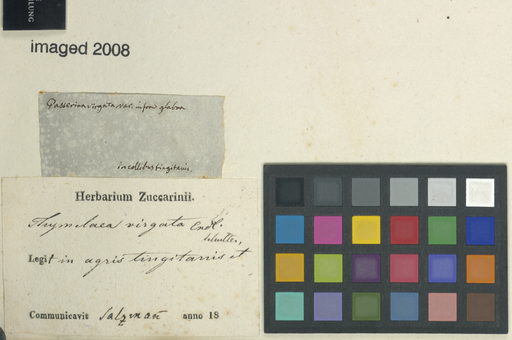 LUNG
imaged 2008
Passerina virgata var. infori glabra
in collibus tingitanis,
Herbarium Zuccarinii.
Thymelaea virgata Endl.
Legit in agris tingitanis et
Communicavit Salzman anno 18